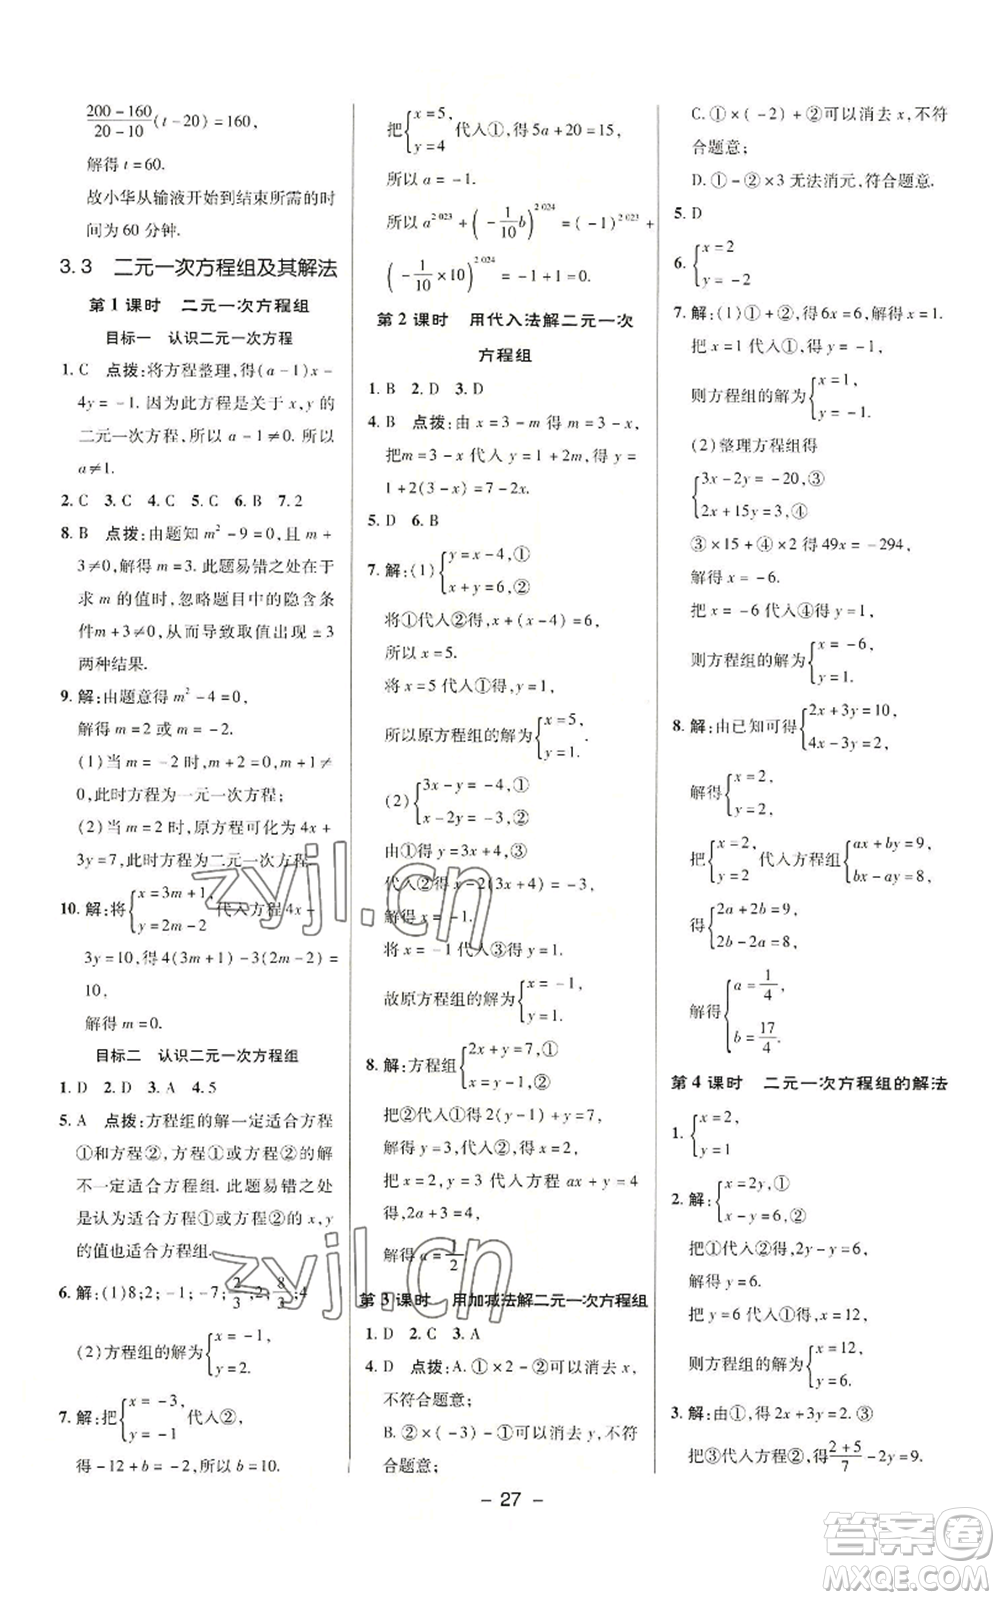 (200-160)/(20-10)(t-20)=160,
解得 t=60.
故小华从输液开始到结束所需的时
间为 60 分钟.
3.3 二元一次方程组及其解法
第 1 课时 二元一次方程组
目标一 认识二元一次方程
1. C 点拨:将方程整理,得(a-1)x-
4y=-1. 因为此方程是关于 x,y 的
二元一次方程,所以 a-1≠0. 所以
a≠1.
2. C 3. C 4. C 5. C 6. B 7. 2
8. B 点拨:由题知 m²-9=0,且 m+
3≠0,解得 m=3. 此题易错之处在于
求 m 的值时,忽略题目中的隐含条
件m+3≠0,从而导致取值出现±3
两种结果.
9. 解:由题意得 m²-4=0,
解得 m=2 或 m=-2.
(1)当 m=-2时,m+2=0,m+1≠
0,此时方程为一元一次方程;
(2)当 m=2 时,原方程可化为 4x+
3y=7,此时方程为二元一次方程.
10. 解:将{x=3m+1, y=2m-2 代入方程4x-
3y=10,得4(3m+1)-3(2m-2)=
10,
解得 m=0.
目标二 认识二元一次方程组
1. D 2. D 3. A 4. 5
5. A 点拨:方程组的解一定适合方程
①和方程②,适合方程①或方程②的解
不一定适合方程组. 此题易错之处
是认为适合方程①或方程②的 x,y
的值也适合方程组.
6. 解:(1)8;2;-1;-7;2/3;8/3;4
(2)方程组的解为{x=-1, y=2.
7. 解:把{x=-3, y=-1 代入②,
得-12+b=-2,所以 b=10.
把{x=5, y=4 代入①,得 5a+20=15,
所以 a=-1.
所以 a^2 023+(-1/10 b)^2 024=(-1)^2 023+
(-1/10×10)^2 024=-1+1=0.
第 2 课时 用代入法解二元一次
方程组
1. B 2. D 3. D
4. B 点拨:由 x=3-m 得 m=3-x,
把m=3-x 代入 y=1+2m,得 y=
1+2(3-x)=7-2x.
5. D 6. B
7. 解:(1){y=x-4,① x+y=6,②
将①代入②得,x+(x-4)=6,
所以 x=5.
将 x=5 代入①得,y=1,
所以原方程组的解为{x=5, y=1.
(2){3x-y=-4,① x-2y=-3,②
由①得 y=3x+4,③
代入②得 x-2(3x+4)=-3,
解得 x=-1.
将 x=-1 代入③得 y=1.
故原方程组的解为{x=-1, y=1.
8. 解:方程组{2x+y=7,① x=y-1,②
把②代入①得 2(y-1)+y=7,
解得 y=3,代入①得 x=2,
把 x=2,y=3 代入方程 ax+y=4
得,2a+3=4,
解得 a=1/2.
第 3 课时 用加减法解二元一次方程组
1. D 2. C 3. A
4. D 点拨:A. ①×2-②可以消去 x,
不符合题意;
B. ②×(-3)-①可以消去 y,不符
合题意;
C. ①×(-2)+②可以消去 x,不符
合题意;
D. ①-②×3 无法消元,符合题意.
5. D
6. {x=2 y=-2
7. 解:(1)①+②,得 6x=6,解得 x=1.
把 x=1 代入①,得 y=-1.
则方程组的解为{x=1, y=-1.
(2)整理方程组得
{3x-2y=-20,③ 2x+15y=3,④
③×15+④×2 得 49x=-294,
解得 x=-6.
把 x=-6代入④得 y=1.
则方程组的解为{x=-6, y=1.
8. 解:由已知可得{2x+3y=10, 4x-3y=2,
解得{x=2, y=2,
把{x=2, y=2 代入方程组{ax+by=9, bx-ay=8,
得{2a+2b=9, 2b-2a=8,
解得{a=1/4, b=17/4.
第 4 课时 二元一次方程组的解法
1. {x=2, y=1
2. 解:{x=2y,① x-y=6,②
把①代入②,得 2y-y=6,
解得 y=6.
把 y=6 代入①,得 x=12,
则方程组的解为{x=12, y=6.
3. 解:由①,得 2x+3y=2. ③
把③代入方程②,得(2+5)/7-2y=9.
- 27 -
zyjl.cn
zyjl.cn
答案圈
MXQE.COM